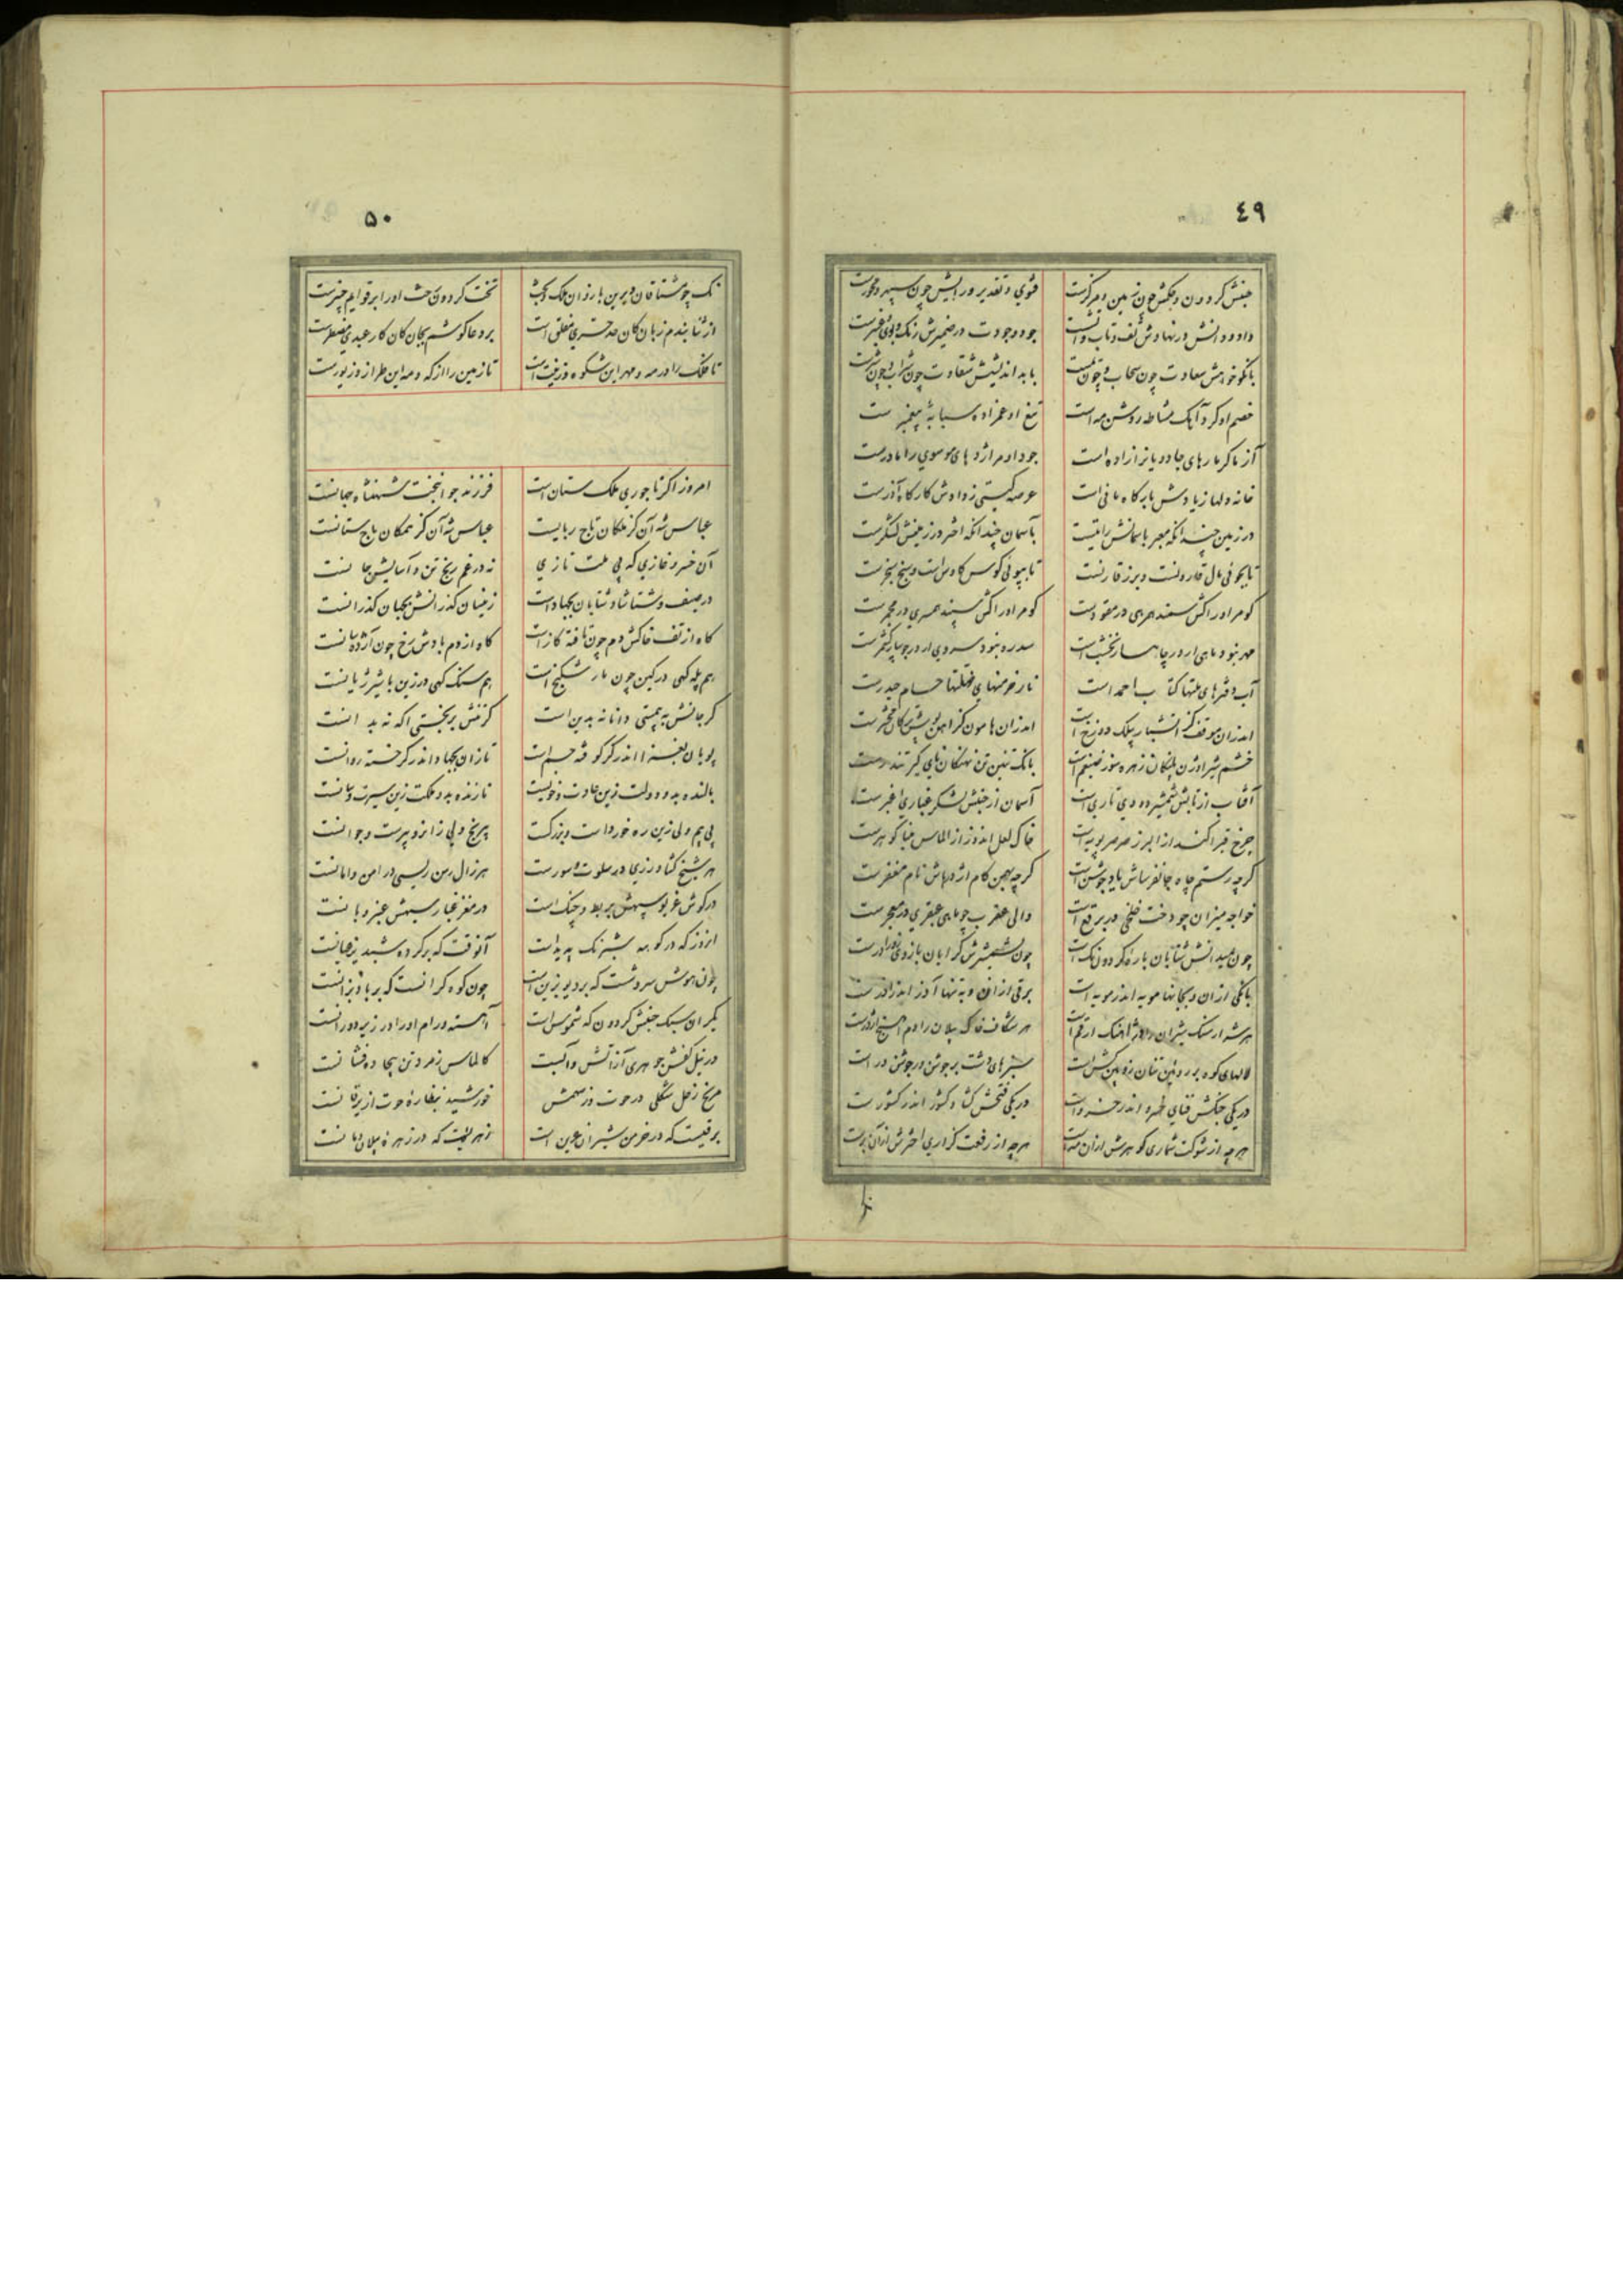 ٤٩
جنبش کردون و حکمش چون زمین و مرکزست
فتوی و تقدیر و رایش چون سپهر و محورست
داد و دانش در نهادش تف و تاب
جود وجودت در ضمیرش رنک و بوی
با نکوخواهش سعادت چون سحاب و چون
با بداندیشش شقاوت چون شراب و چون
خصم او کرد آنک مشاطه روشن مه است
تیغ او عمزاده سبابهٔ پیغمبرست
آز ما کر مارهای جادو یانرا زاده است
جود او مر اژدهای موسوی را مادرست
خانه دلها ز یادش بارکاه مانی است
عرصه کیتی ز دادش کارکاه آذرست
در زمین چندانکه معبر باسمانش رایتست
بآسمان چندانکه اختر در زمینش لشکرست
تا بجوئی مال قارونست و برز قارنست
تا بپوئی کوس کاوس است و سنج سنجرست
کو مر او را کش سمند همرهی در مقودست
کو مر او را کش سپند همسری در مجمرست
مهر نبود ماهی ار در چاهسار نخشب است
سدره نبود سروی ار در جویبار کشمرست
آب دفترهای ملتها کتاب احمد است
نار خرمنهای نحلتها حسام حیدرست
اندران موقف کز
اندران هامون کز
خشم شیر اوژن پلنکان زهره سوز ضیغم است
بانک تنین تن نهنکان نای کیر تندرست
آفتاب از تابش شمشیر دودی تاری است
آسمان از جنبش لشکر غباری اغبرست
چرخ قیر اکند از البرز صرصر پویه است
خاک لعل اندوز از الماس مینا کوهرست
کرچه رستم چاه جانفرساش یا د جوشن است
کرچه بهمن کام اژدرهاش نام مغفرست
خواجه میزان چو دخت خلخی در برقع است
والی عقرب چو ماهی عبقری در معجرست
چون میدانش شتابان باره کردون تک است
چون شمشیرش کرایان بازوی زورآورست
بانکی از ان و بجانها مویه اندر مویه است
برقی از این و به تنها آذر اندر آذرست
هر شرار سنک شیران را
هر شکاف خاک پیلان را دم
لالهای کوه بر روئین تنان زوبین کش است
سبزهای دشت بر جوشن ور جوشن در است
در یکی جنکش فنای خسرو اندر خسرو است
در یکی فتحش کشاد کشور اندر کشورست
هرچه از شوکت شماری کوهرش از ان مه است
هرچه از رفعت کزاری اخترش از آن برست
٥٠
تک چو مشتاقان
تخت کردون
از ثنا بندم زبان کان
بر دعا کوشم بجان کان کار عبدی مضطرست
تا فلک را در مه و مهر این شکوه و زینت است
تا زمین را از که و مه این طراز و زیورست
امروز اکر تاجوری ملک ستان است
فرزند جوانبخت شهنشاه جهانست
عباس شه آن کز ملکان تاج ربایست
عباس شه آن کز ملکان باج ستانست
آن خسرو غازی که پی ملت تازی
نه در غم رنج تن و آسایش جانست
در صیف و شتا شاد شتابان بجهاد است
زینسان کذرانش بجهان کذرانست
کاه از تف خاکش دم چون تافته کاز است
کاه از دم بادش رخ چون آژده سانست
هم پله کهی در کین چون مار شکنج است
هم سنک کهی در زین با شیر ژیانست
کر جانش به پستی دانا نه بدین است
کر تنش بر بختی اکه نه بدانست
پویان بغزا اندر کر کوفته جسم است
تازان بجهاد اندر کر خسته روانست
بالنده بدو دولت زین عادت و خویست
نازنده بدو ملکت زین سیرت و سانست
بی بیم ولی زین ره خورد است و بزرکست
بی رنج ولی زانرو پیرست و جوانست
هر شیخ کشاورزی در سلوت و سورست
هر زال رسن ریسی در امن و امانست
در کوش غو کوسپهش بربط و چنک است
در مغز غبار سپهش عنبر و بانست
انروز که در کوهه شبرنک پدید است
آنوقت که بر کرده شبدیز عیانست
چون هوش سروشست که بر دیو بزین است
چون کوه کرانست که بر باد بزانست
یکران سبک جنبش کردون که شموس است
آهسته و رام او را در زیر دو رانست
در نیل کفش جوهری آز آتش و آبست
کالماس زمرد تن بیجاده فشانست
مریخ زحل شکلی در حوت وز سهمش
خورشید بنظاره حوت از یرقانست
برقیست که در خرمن شیران عرین است
زهریست که در زهره پیلان دمانست